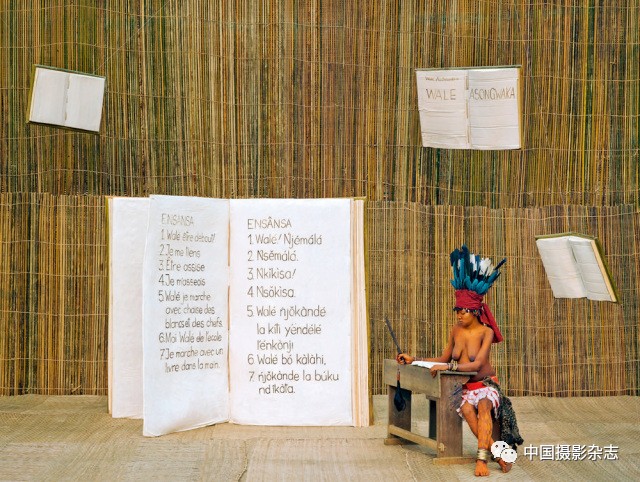 WALE ASONGWAKA
ENSANSA
1 Walé être debout!
2 Je me tiens
3. Être assise
4 Je m'asseois
5 Walé je marche
avec chaise des
blancs et des chefs.
6. Moi Walé de l'ecole
7. Je marche avec un
livre dans la main.
ENSÂNSA
1. Walé! Njémálá
2. Nsémáló.
3. Nkíkisa!
4 Nsókisa.
5 Walé njòkàndé
la kiti yěndélé
6 Walé bó kàlàhi,
7. njòkànde la búku
中国摄影杂志